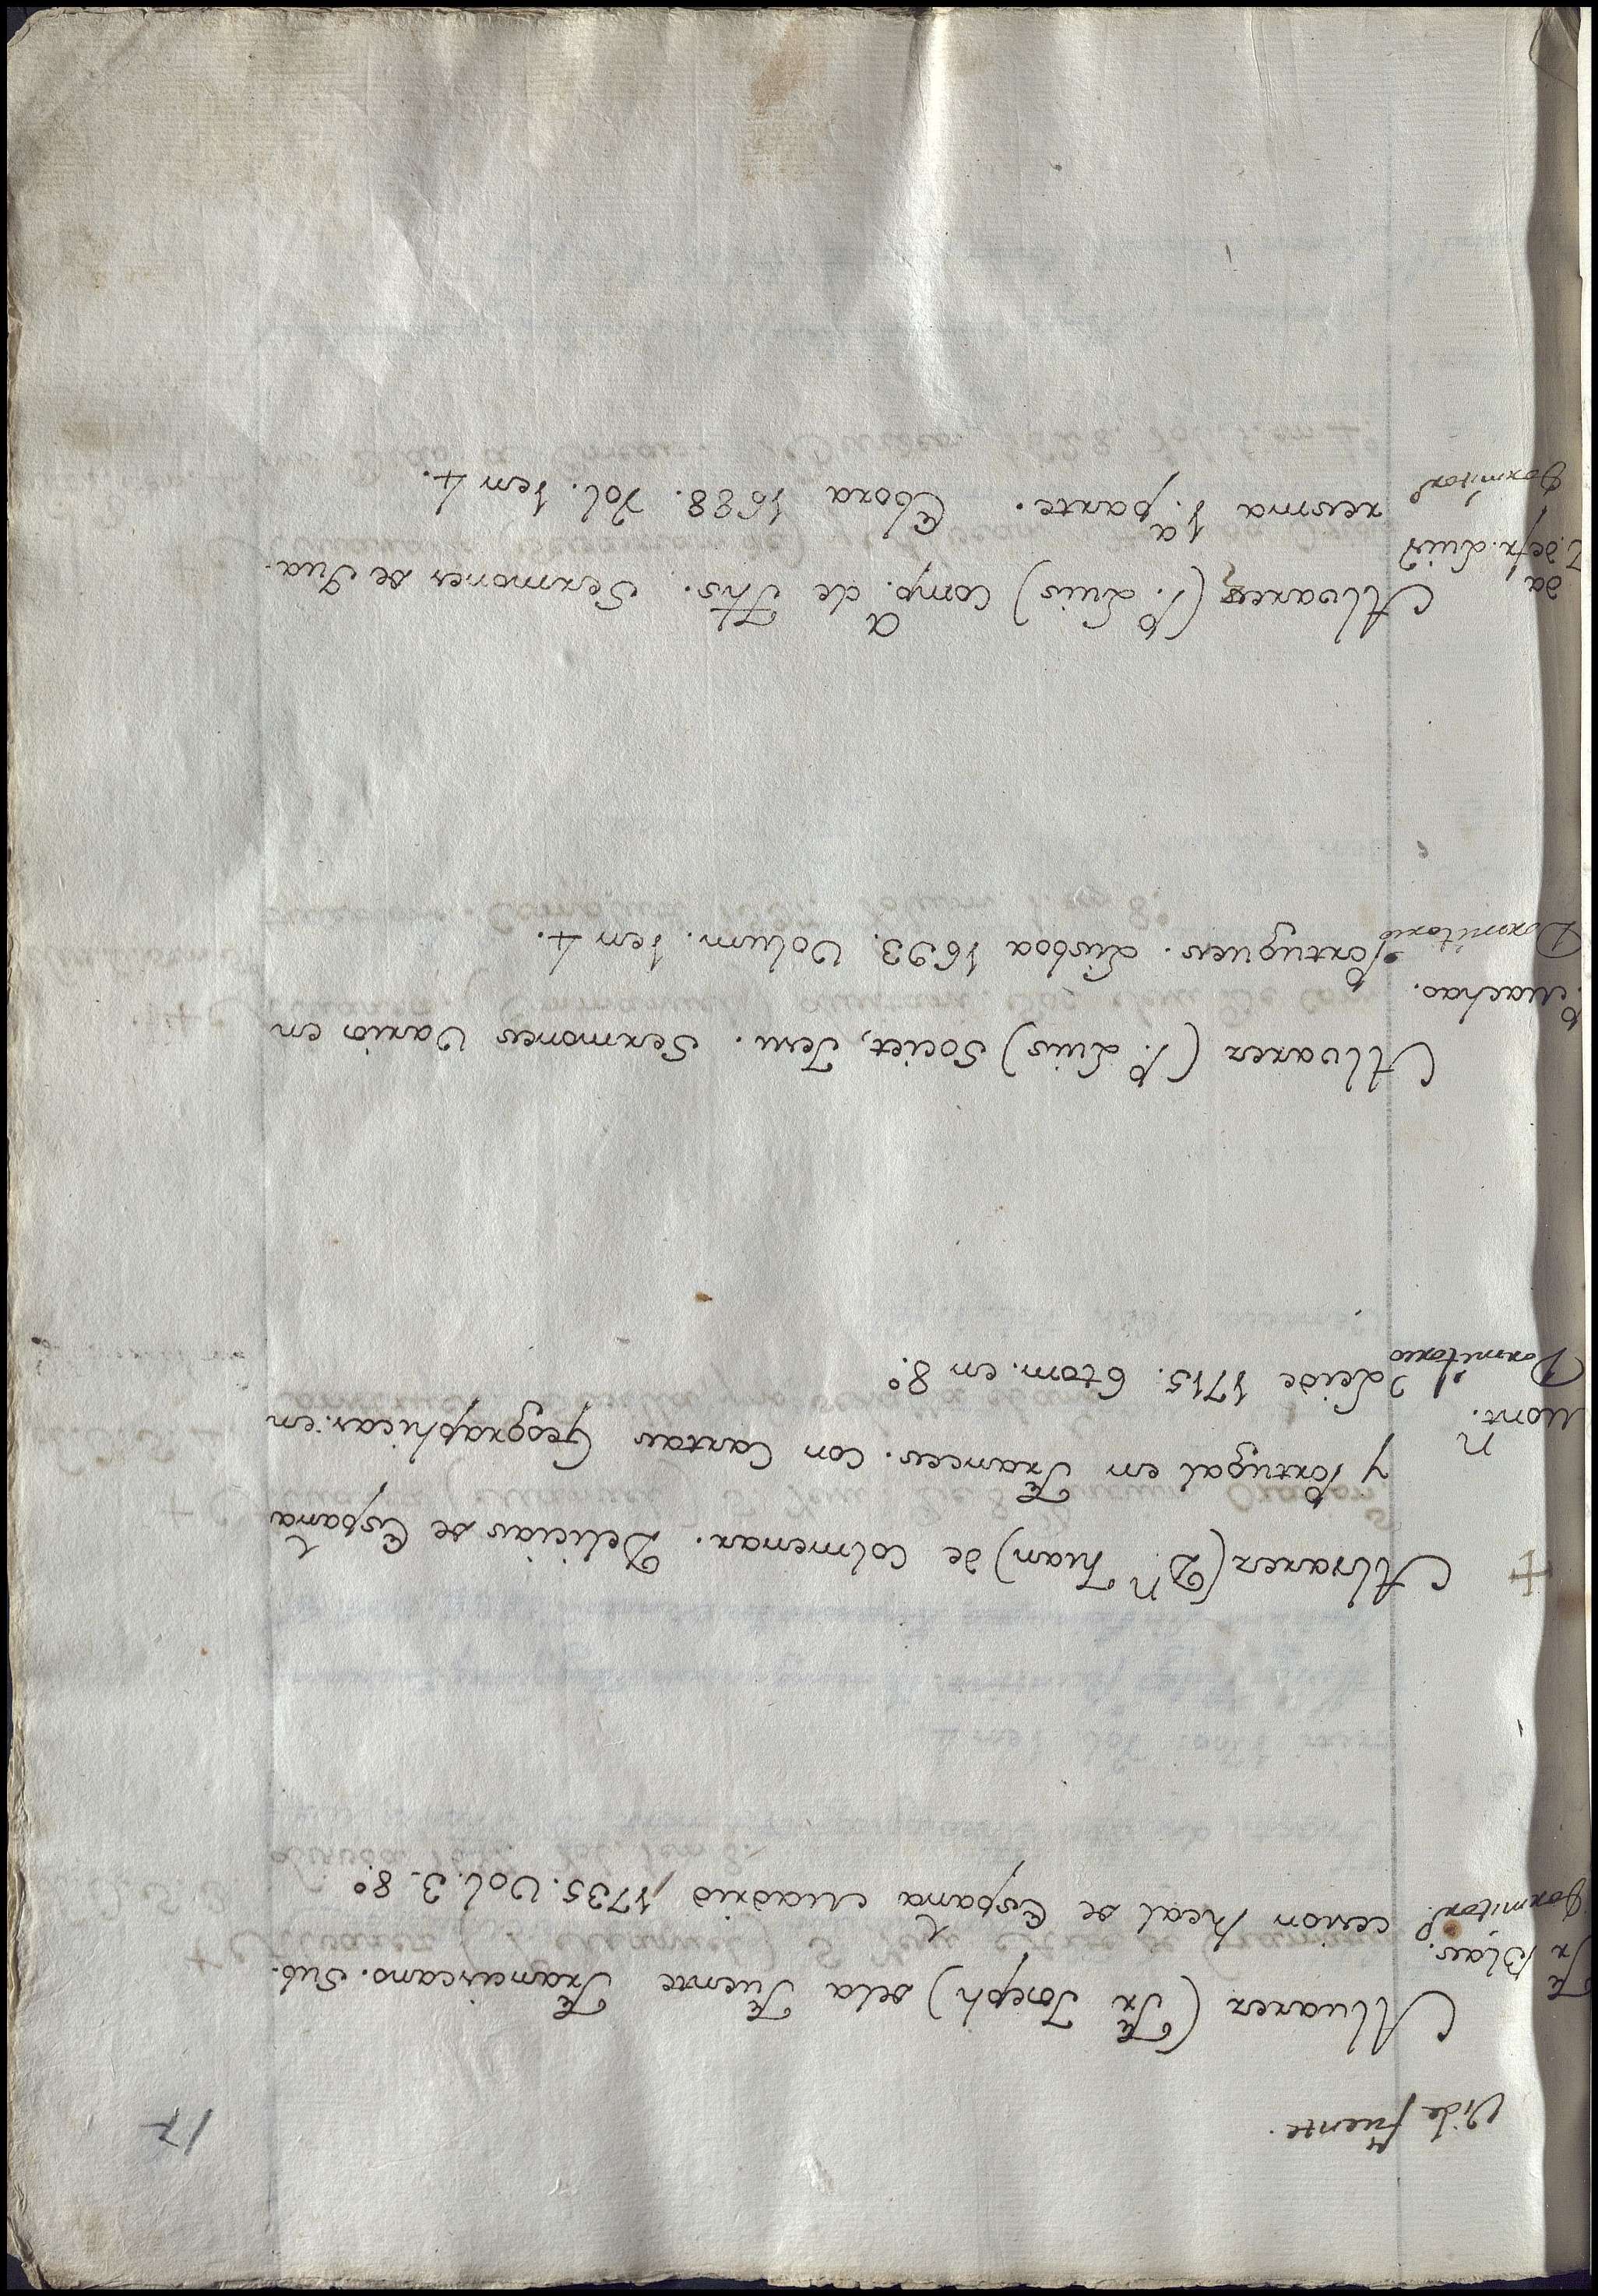 17
Vide fuente.
Fr Blas.
Dormitorº
Alvarez (Fr Joseph) dela Fuente Franciscano. Sub-
cesion Real de España Madrid 1735. Vol. 3. 8.º
+
Alvarez (Dn Juan) de Colmenar. Delicias de España
Mont.
y Portugal en Frances. con Cartas Geographicas. en
Dormitorio
Leide 1715. 6 tom. en 8.º
Alvarez (P. Luis) Societ, Jesu. Sermones Varios en
P. Machao.
Portugues. Lisboa 1693. Volum. 1 en 4.
Dormitorio
Alvarez (P. Luis) Comp.a de Jhs. Sermones de Qua-
da
de fr. Luis
resma 1.a parte. Ebora 1688. Vol. 1 en 4.
Dormitorº